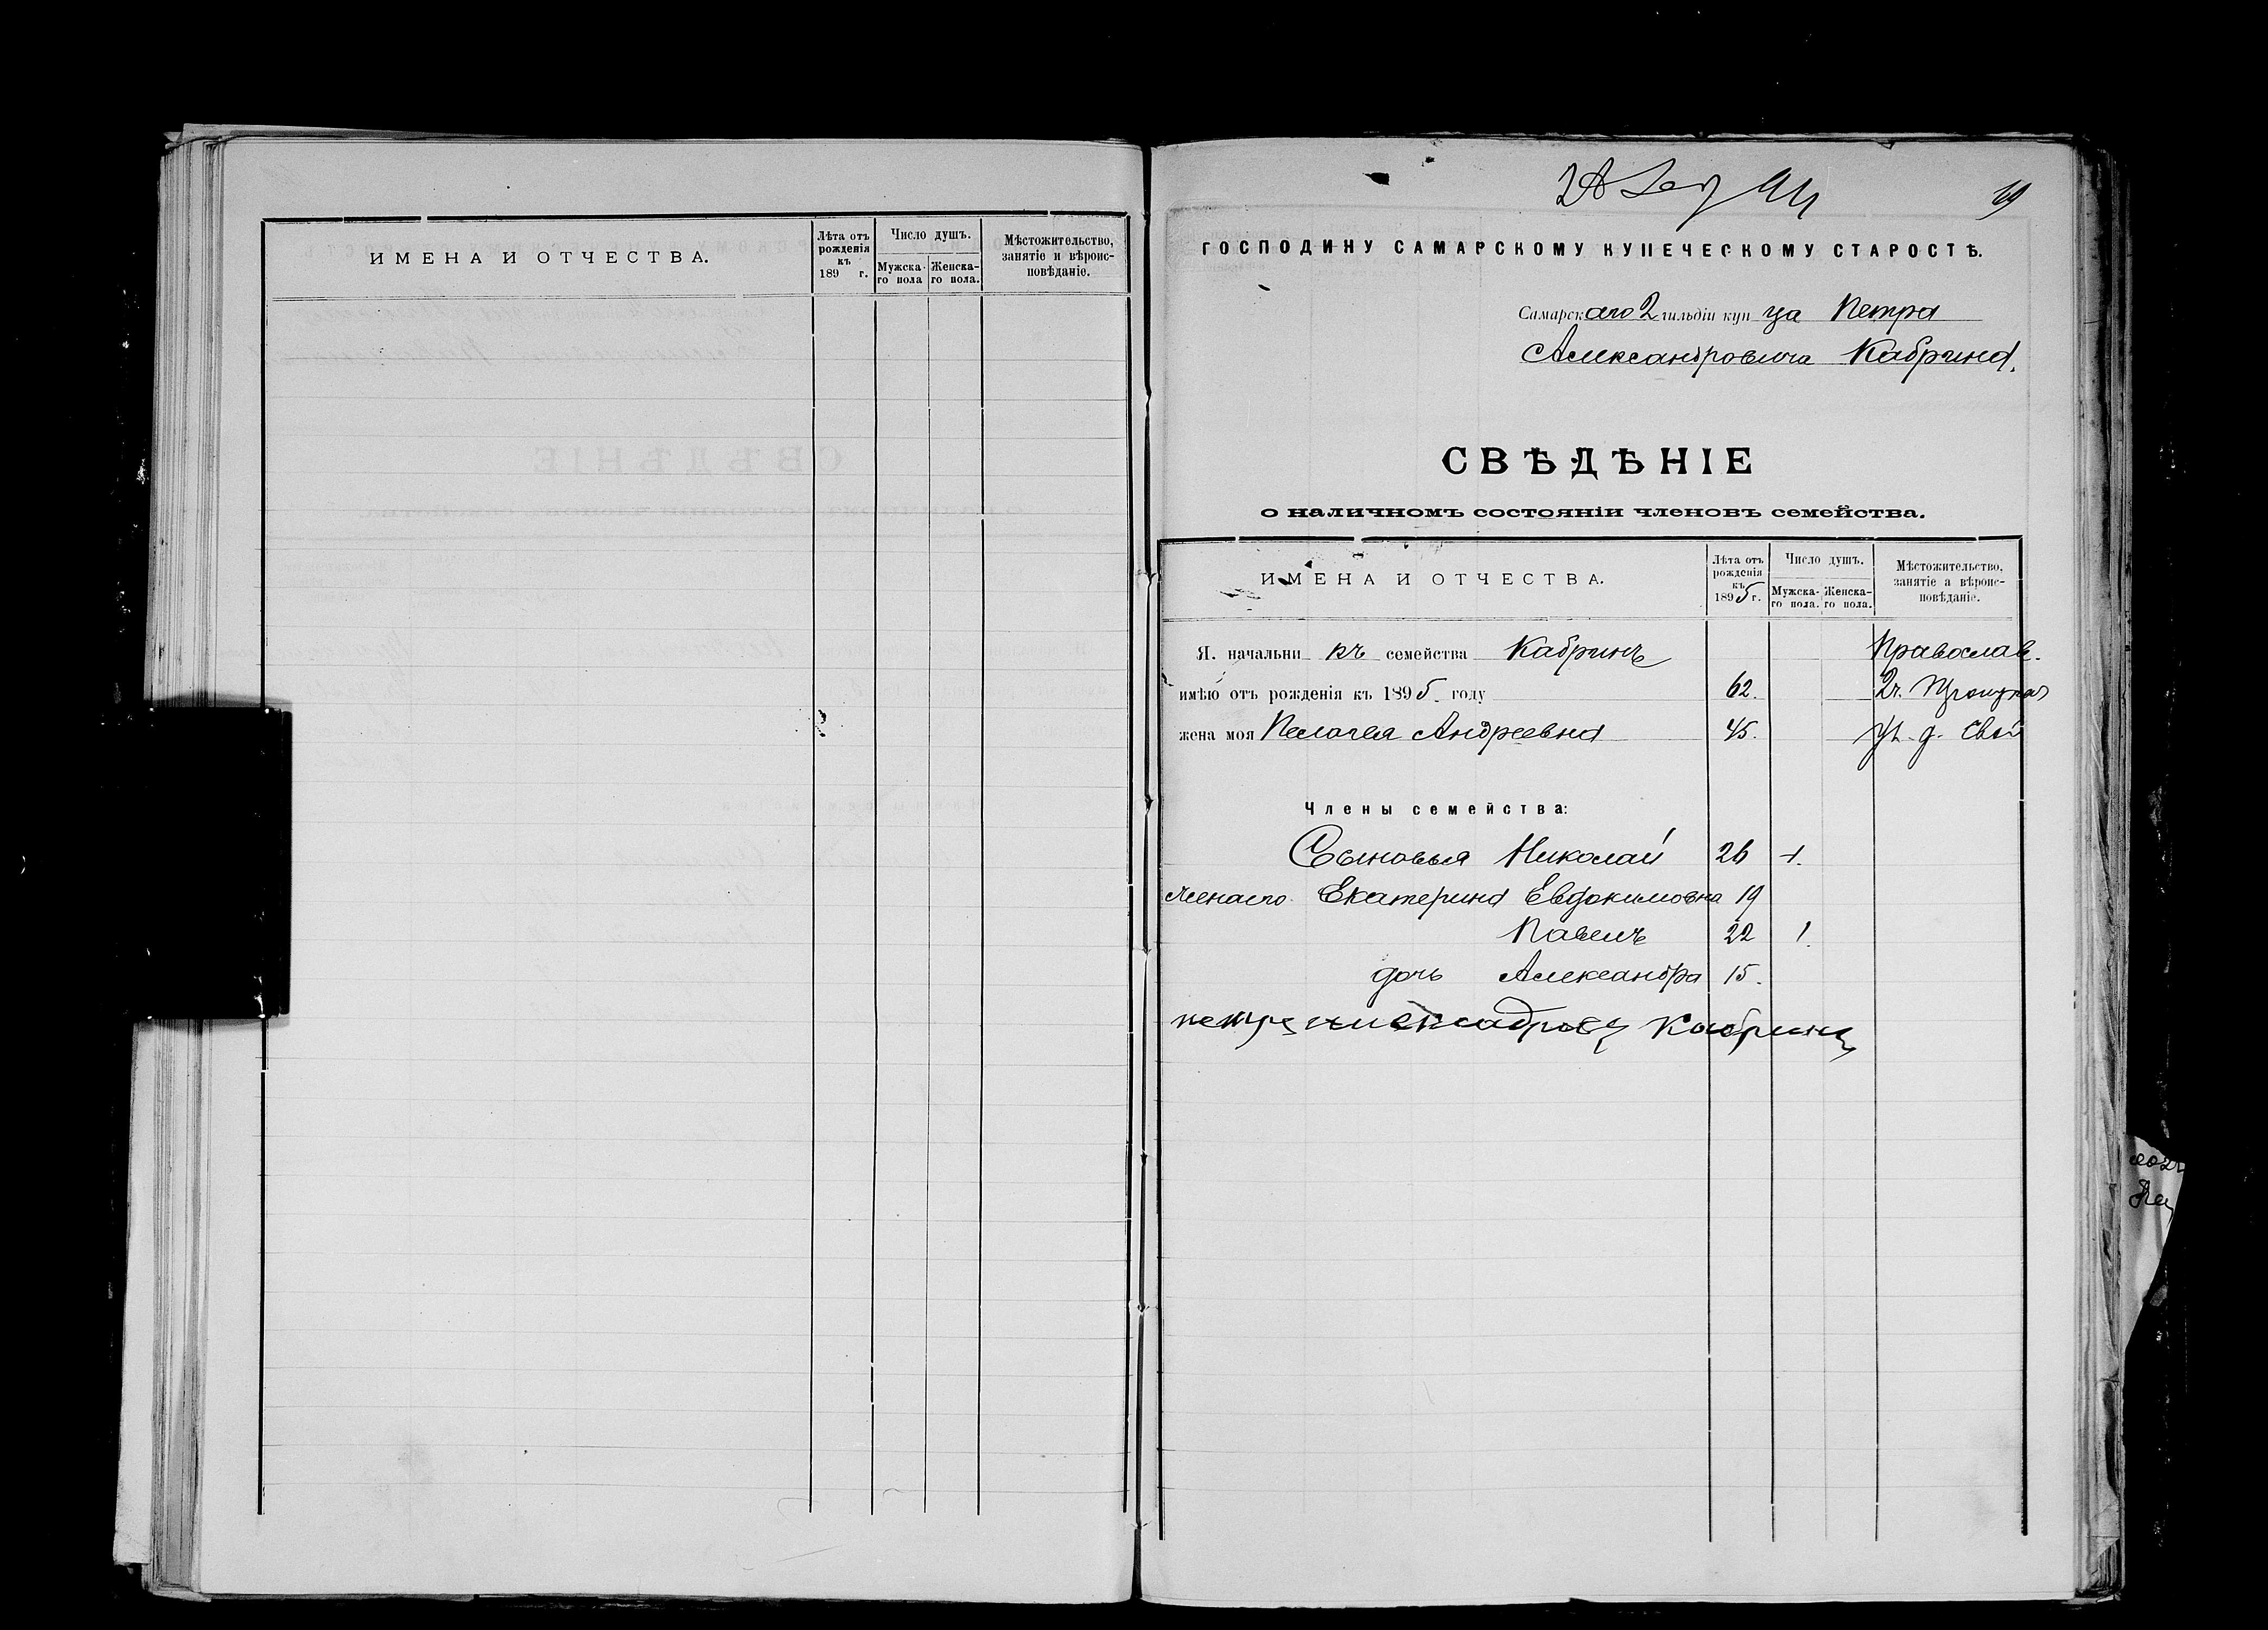 ИМЕНА И ОТЧЕСТВА.
Лѣта отъ рожденія къ 189 г.
Число душъ.
Мужска-го пола
Женска-го пола.
Мѣстожительство, занятіе и вѣроис-повѣданіе.
69
ГОСПОДИНУ САМАРСКОМУ КУПЕЧЕСКОМУ СТАРОСТѢ.
Самарскаго 2 гильдіи купца Петра
Александровича Кабрина.
СВѢДѢНІЕ
о наличномъ состояніи членовъ семейства.
ИМЕНА И ОТЧЕСТВА.
Лѣта отъ рожденія къ 1895 г.
Число душъ.
Мужска-го пола.
Женска-го пола.
Мѣстожительство, занятіе а вѣроис-повѣданіе.
Я. начальникъ семейства Кабринъ Православ.
имѣю отъ рожденія къ 1895 году 62. 2ч. Троицкая
жена моя Пелагея Андреевна 45. ул. д. Свой
Члены семейства:
Сыновья Николай 26 1.
жена его Екатерина Евдокимовна 19
Павелъ 22 1.
дочь Александра 15.
Кабринъ